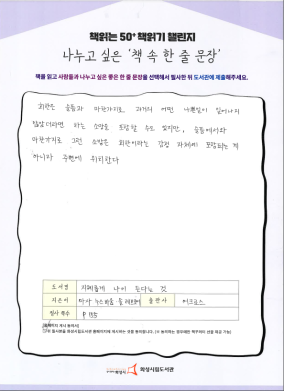 책읽는 50+ 책읽기 챌린지
나누고 싶은 '책 속 한 줄 문장'
책을 읽고 사람들과 나누고 싶은 좋은 한 줄 문장을 선택해서 필사한 뒤 도서관에 제출해주세요.
회한은 슬픔과 마찬가지로, 과거의 어떤 나쁜일이 일어나지
않았더라면 하는 소망을 포함할 수도 있지만, 슬픔에서와
마찬가지로 그런 소망은 회한이라는 감정 자체에 포함되는 게
아니라 주변에 위치한다
도서명 지혜롭게 나이 든다는 것
지은이 마사 누스바움·솔 레브모어 출판사 어크로스
필사 쪽수 P 155
[홈페이지 게시 동의서]
화성시 화성시립도서관